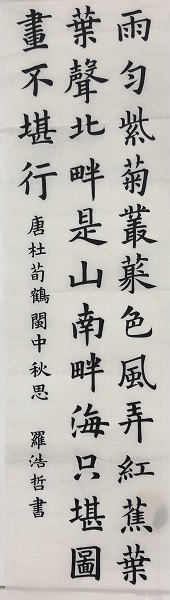 雨匀紫菊叢叢色風弄紅蕉葉
葉聲北畔是山南畔海只堪圖
畫不堪行
唐杜荀鶴閩中秋思
羅浩哲書